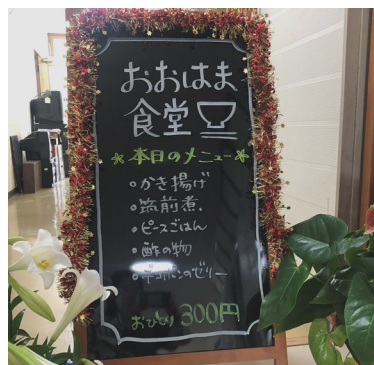 おおはま
食堂
本日のメニュー
かき揚げ
筑前煮
ピースごはん
酢の物
デコポンのゼリー
おひとり 300円